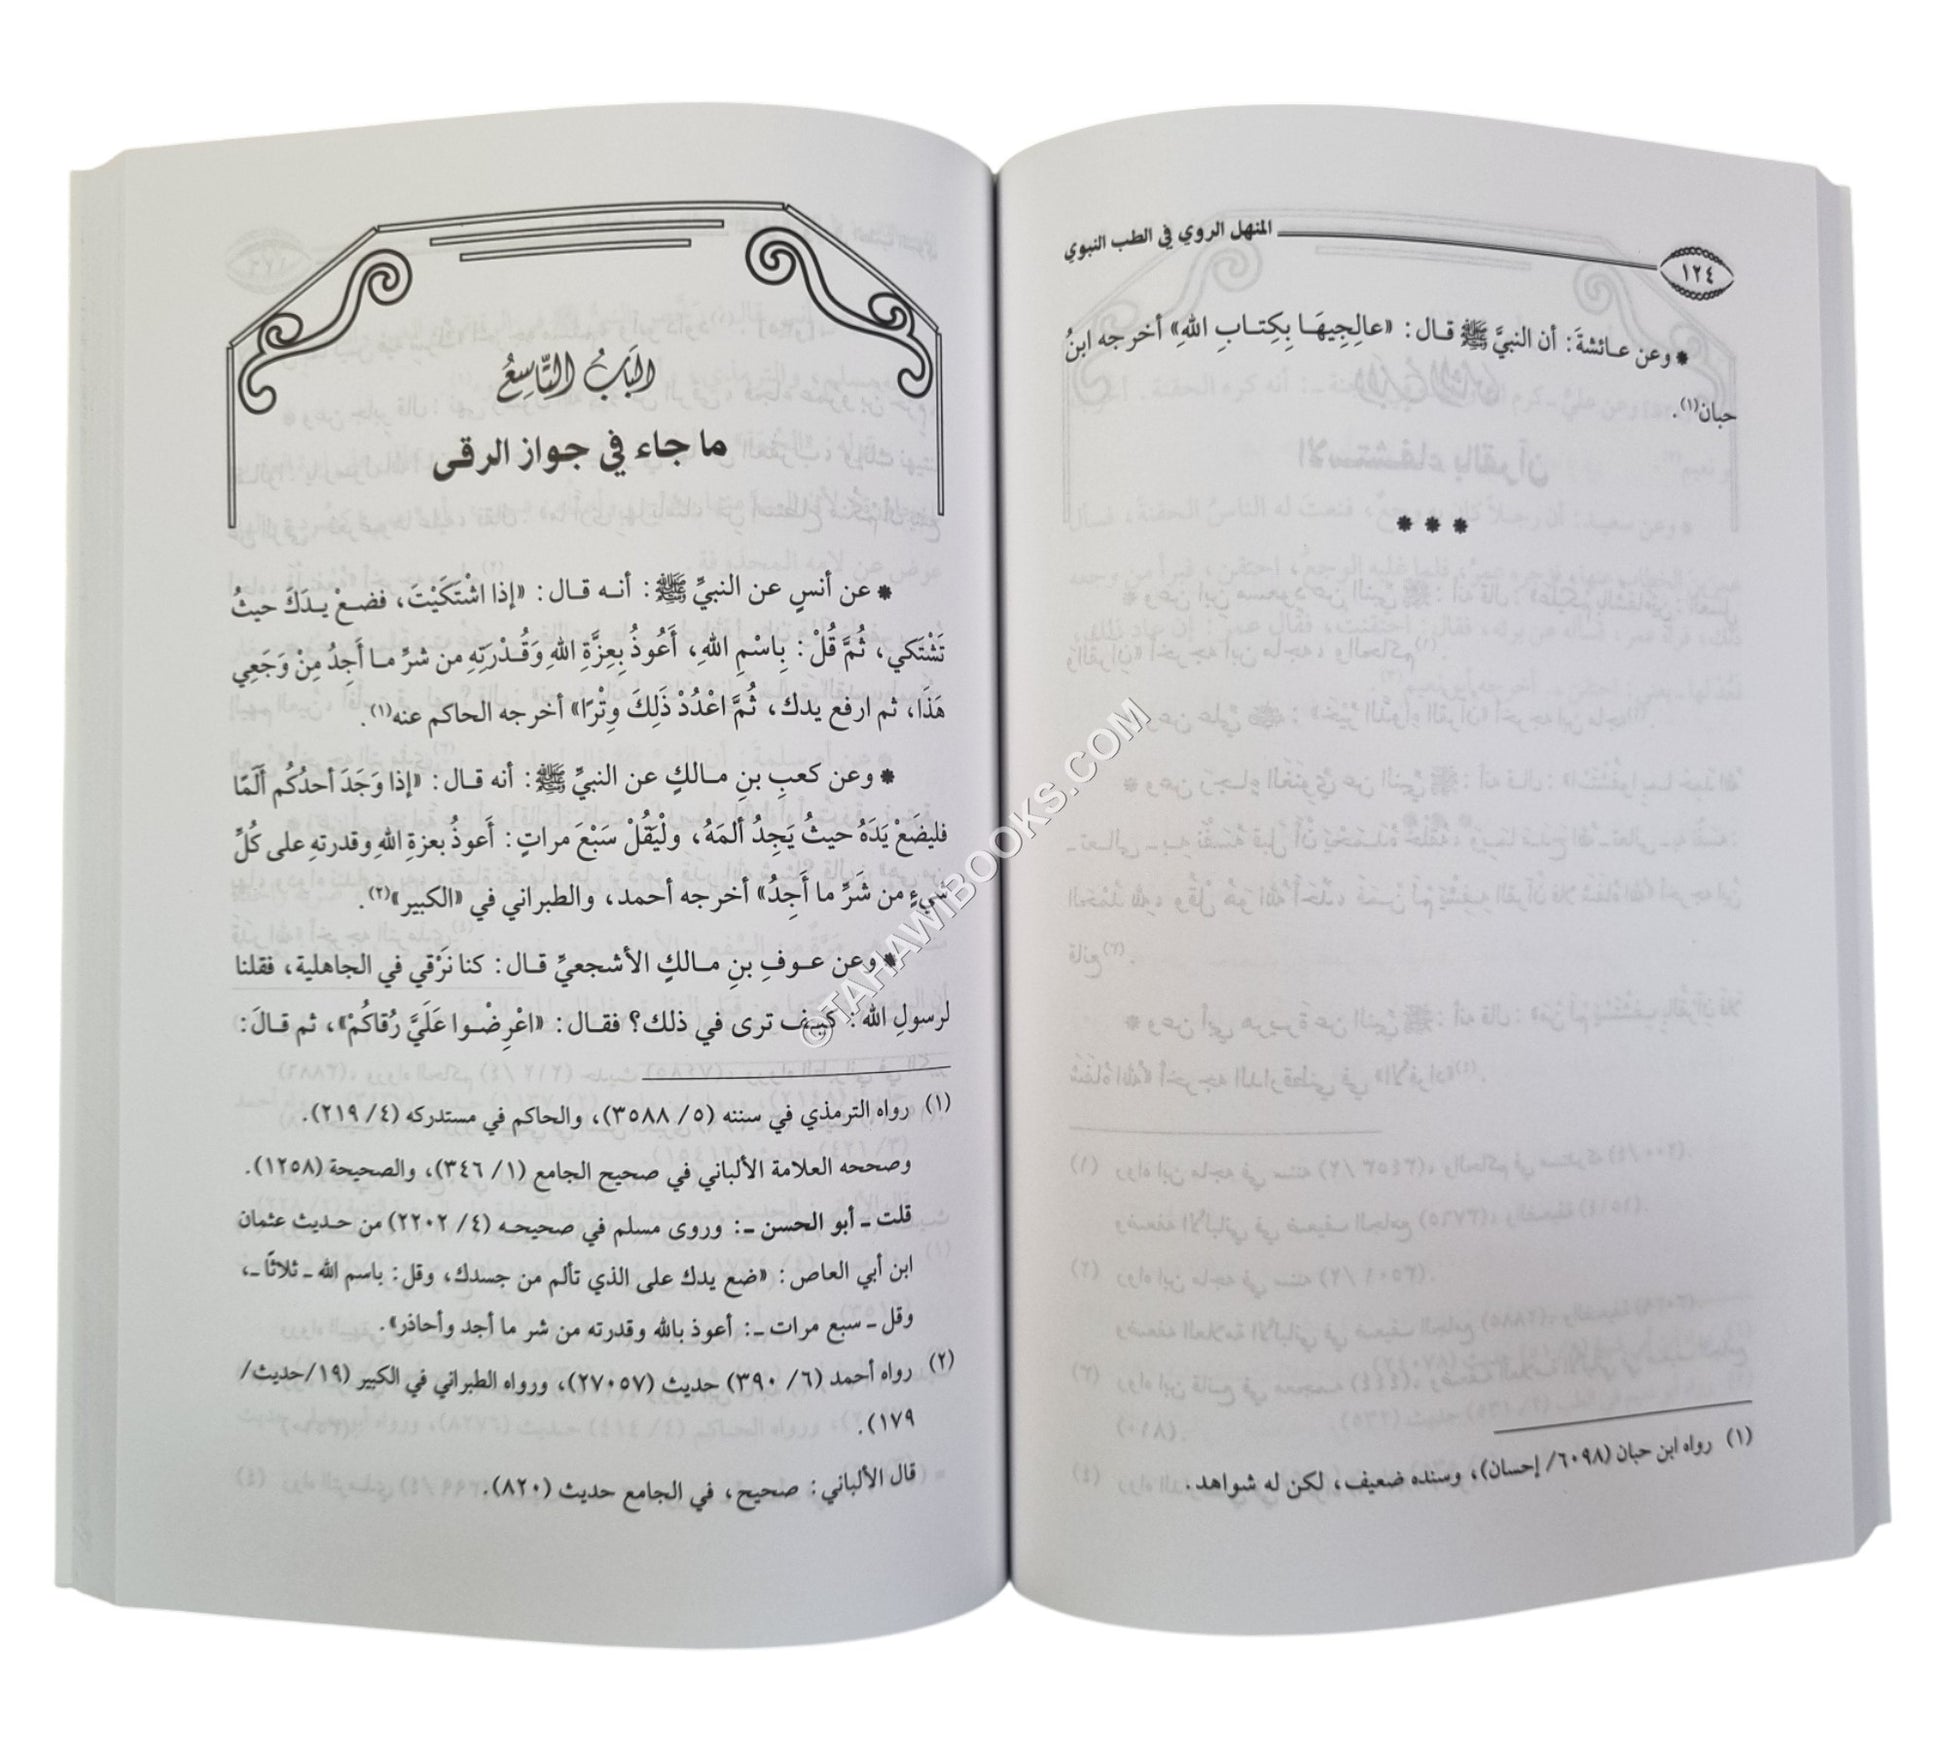 ١٢٤
المنهل الروي في الطب النبوي
* وعن عائشةَ: أن النبيَّ ﷺ قال: «عالِجِيهَا بِكِتابِ اللهِ» أخرجه ابنُ
حبان(١).
* * *
(١) رواه ابن حبان (٦٠٩٨/ إحسان)، وسنده ضعيف، لكن له شواهد.
البَابُ التَّاسِعُ
ما جاء في جواز الرقى
* عن أنسٍ عن النبيِّ ﷺ: أنه قال: «إذا اشْتَكَيْتَ، فضعْ يدَكَ حيثُ
تَشْتَكي، ثُمَّ قُلْ: بِاسْمِ اللهِ، أَعُوذُ بِعِزَّةِ اللهِ وَقُدْرَتِهِ من شرِّ ما أَجِدُ مِنْ وَجَعِي
هَذَا، ثم ارفع يدك، ثُمَّ اعْدُدْ ذَلِكَ وِتْرًا» أخرجه الحاكم عنه(١).
* وعن كعبِ بنِ مالكٍ عن النبيِّ ﷺ: أنه قال: «إذا وَجَدَ أحدُكُم أَلَمًا
فليضَعْ يَدَهُ حيثُ يَجِدُ ألمَهُ، ولْيَقُلْ سَبْعَ مراتٍ: أَعوذُ بعزةِ اللهِ وقدرتهِ على كُلِّ
شيءٍ من شَرِّ ما أَجِدُ» أخرجه أحمد، والطبراني في «الكبير»(٢).
* وعن عوفِ بنِ مالكٍ الأشجعيِّ قال: كنا نَرْقي في الجاهلية، فقلنا
لرسولِ الله: كيف ترى في ذلك؟ فقال: «اعْرِضُوا عَلَيَّ رُقاكُمْ»، ثم قالَ:
(١) رواه الترمذي في سننه (٥/ ٣٥٨٨)، والحاكم في مستدركه (٤/ ٢١٩).
وصححه العلامة الألباني في صحيح الجامع (١/ ٣٤٦)، والصحيحة (١٢٥٨).
قلت ـ أبو الحسن ـ: وروى مسلم في صحيحه (٤/ ٢٢٠٢) من حديث عثمان
ابن أبي العاص: «ضع يدك على الذي تألم من جسدك، وقل: باسم الله ـ ثلاثًا ـ،
وقل ـ سبع مرات ـ: أعوذ بالله وقدرته من شر ما أجد وأحاذر».
(٢) رواه أحمد (٦/ ٣٩٠) حديث (٢٧٠٥٧)، ورواه الطبراني في الكبير (١٩/حديث/
١٧٩).
قال الألباني: صحيح، في الجامع حديث (٨٢٠).
©TAHAWIBOOKS.COM